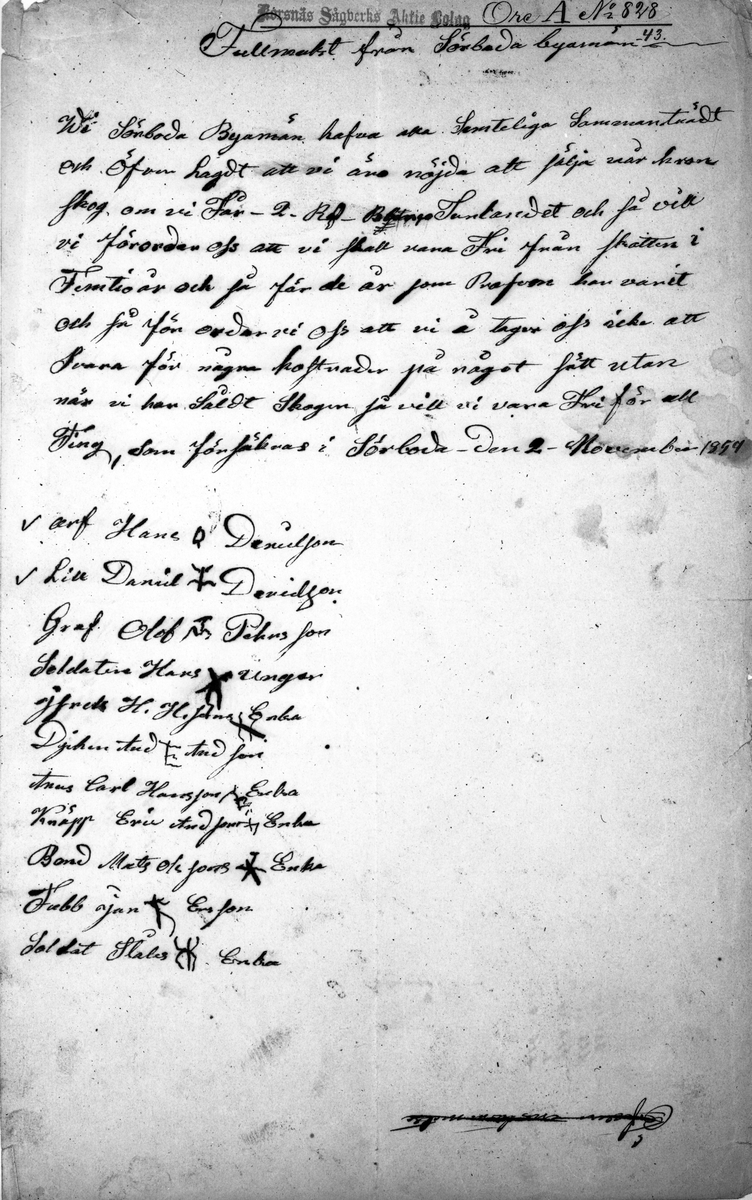 Korsnäs Sågverks Aktie Bolag Ore A No 828
43
Fullmakt från Sörboda byamän
Wi Sörboda Byamän hafva Samteliga Sammanträdt
och Öfven lagdt att vi äro nöjda att sälja vår kron
skog om vi Får - 2 - Rd - Tunlandet och så vill
vi förordar oss att vi skall vara Fri från skatten i
Femtio år och så får de år som Rafven har varit
och så för ordar vi oss att vi å tager oss icke att
Svara för några kostnader på något sätt utan
när vi har Såldt Skogen så vill vi vara Fri för all
Ting, som försäkras i Sörboda - den 2 - November 1894
Arf Hans Danielson
Lill Daniel Davidson
Graf Olof Pehrsson
Soldaten Hans Unger
H. H.sons Enka
Djiken And Andson
Anus Carl Hansson Enka
Knäpp Eric Andsons Enka
Bond Mats Olssons Enka
Fubb Jan Ersson
Soldat Ståles Enka